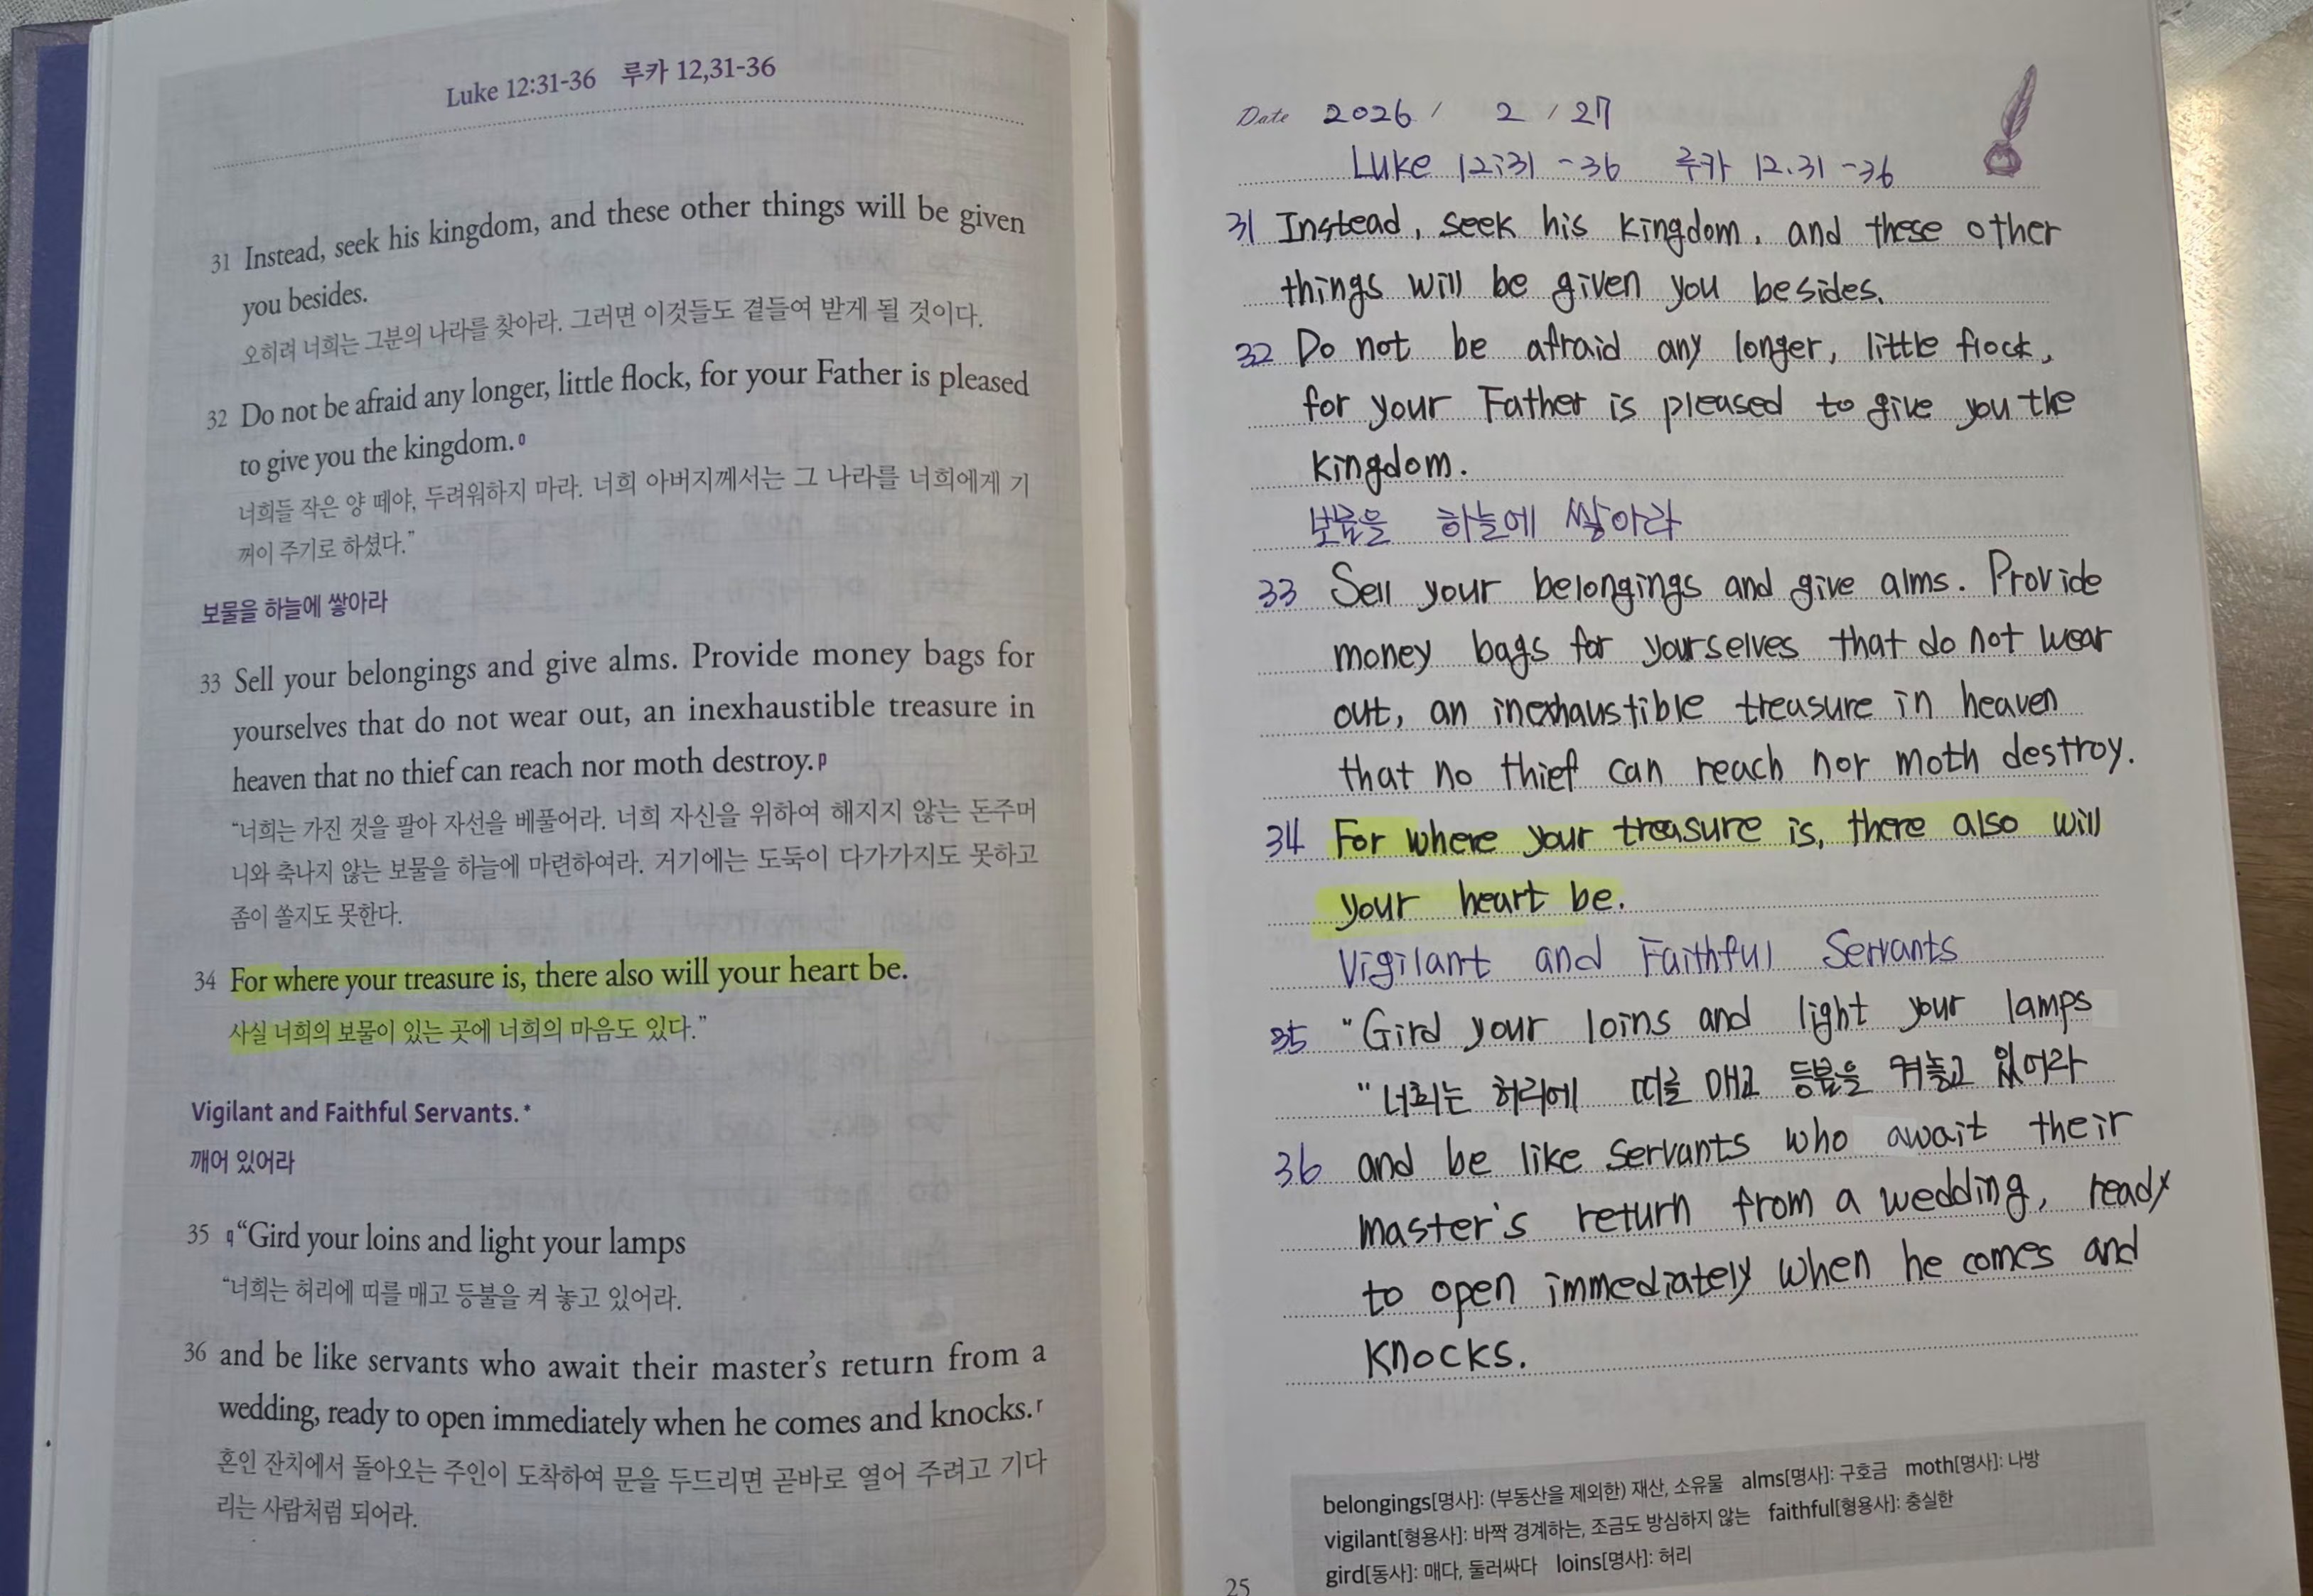 Luke 12:31-36 루카 12,31-36
31 Instead, seek his kingdom, and these other things will be given
you besides.
오히려 너희는 그분의 나라를 찾아라. 그러면 이것들도 곁들여 받게 될 것이다.
32 Do not be afraid any longer, little flock, for your Father is pleased
to give you the kingdom.o
너희들 작은 양 떼야, 두려워하지 마라. 너희 아버지께서는 그 나라를 너희에게 기
꺼이 주기로 하셨다.”
보물을 하늘에 쌓아라
33 Sell your belongings and give alms. Provide money bags for
yourselves that do not wear out, an inexhaustible treasure in
heaven that no thief can reach nor moth destroy.p
“너희는 가진 것을 팔아 자선을 베풀어라. 너희 자신을 위하여 해지지 않는 돈주머
니와 축나지 않는 보물을 하늘에 마련하여라. 거기에는 도둑이 다가가지도 못하고
좀이 쏠지도 못한다.
34 For where your treasure is, there also will your heart be.
사실 너희의 보물이 있는 곳에 너희의 마음도 있다.”
Vigilant and Faithful Servants.*
깨어 있어라
35 q“Gird your loins and light your lamps
“너희는 허리에 띠를 매고 등불을 켜 놓고 있어라.
36 and be like servants who await their master’s return from a
wedding, ready to open immediately when he comes and knocks.r
혼인 잔치에서 돌아오는 주인이 도착하여 문을 두드리면 곧바로 열어 주려고 기다
리는 사람처럼 되어라.
Date 2026 / 2 / 27
Luke 12:31-36 루카 12.31-36
31 Instead, seek his kingdom, and these other
things will be given you besides.
32 Do not be afraid any longer, little flock,
for your Father is pleased to give you the
kingdom.
보물을 하늘에 쌓아라
33 Sell your belongings and give alms. Provide
money bags for yourselves that do not wear
out, an inexhaustible treasure in heaven
that no thief can reach nor moth destroy.
34 For where your treasure is, there also will
your heart be.
Vigilant and Faithful Servants
35 “Gird your loins and light your lamps
“너희는 허리에 띠를 매고 등불을 켜놓고 있어라
36 and be like servants who await their
master's return from a wedding, ready
to open immediately when he comes and
knocks.
belongings[명사]: (부동산을 제외한) 재산, 소유물 alms[명사]: 구호금 moth[명사]: 나방
vigilant[형용사]: 바짝 경계하는, 조금도 방심하지 않는 faithful[형용사]: 충실한
gird[동사]: 매다, 둘러싸다 loins[명사]: 허리
25